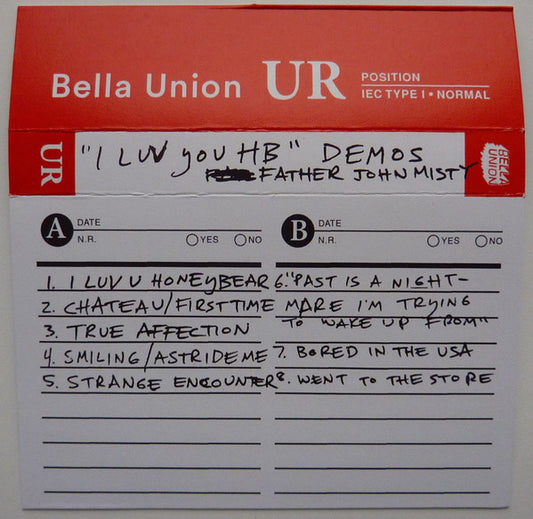 Bella Union UR POSITION
IEC TYPE I • NORMAL
UR
"I LUV YOU HB" DEMOS
FATHER JOHN MISTY
BELLA UNION
A DATE
N.R. YES NO
1. I LUV U HONEYBEAR
2. CHATEAU/FIRST TIME
3. TRUE AFFECTION
4. SMILING/ASTRIDE ME
5. STRANGE ENCOUNTER
B DATE
N.R. YES NO
6. "PAST IS A NIGHT-
MARE I'M TRYING
TO WAKE UP FROM"
7. BORED IN THE USA
8. WENT TO THE STORE